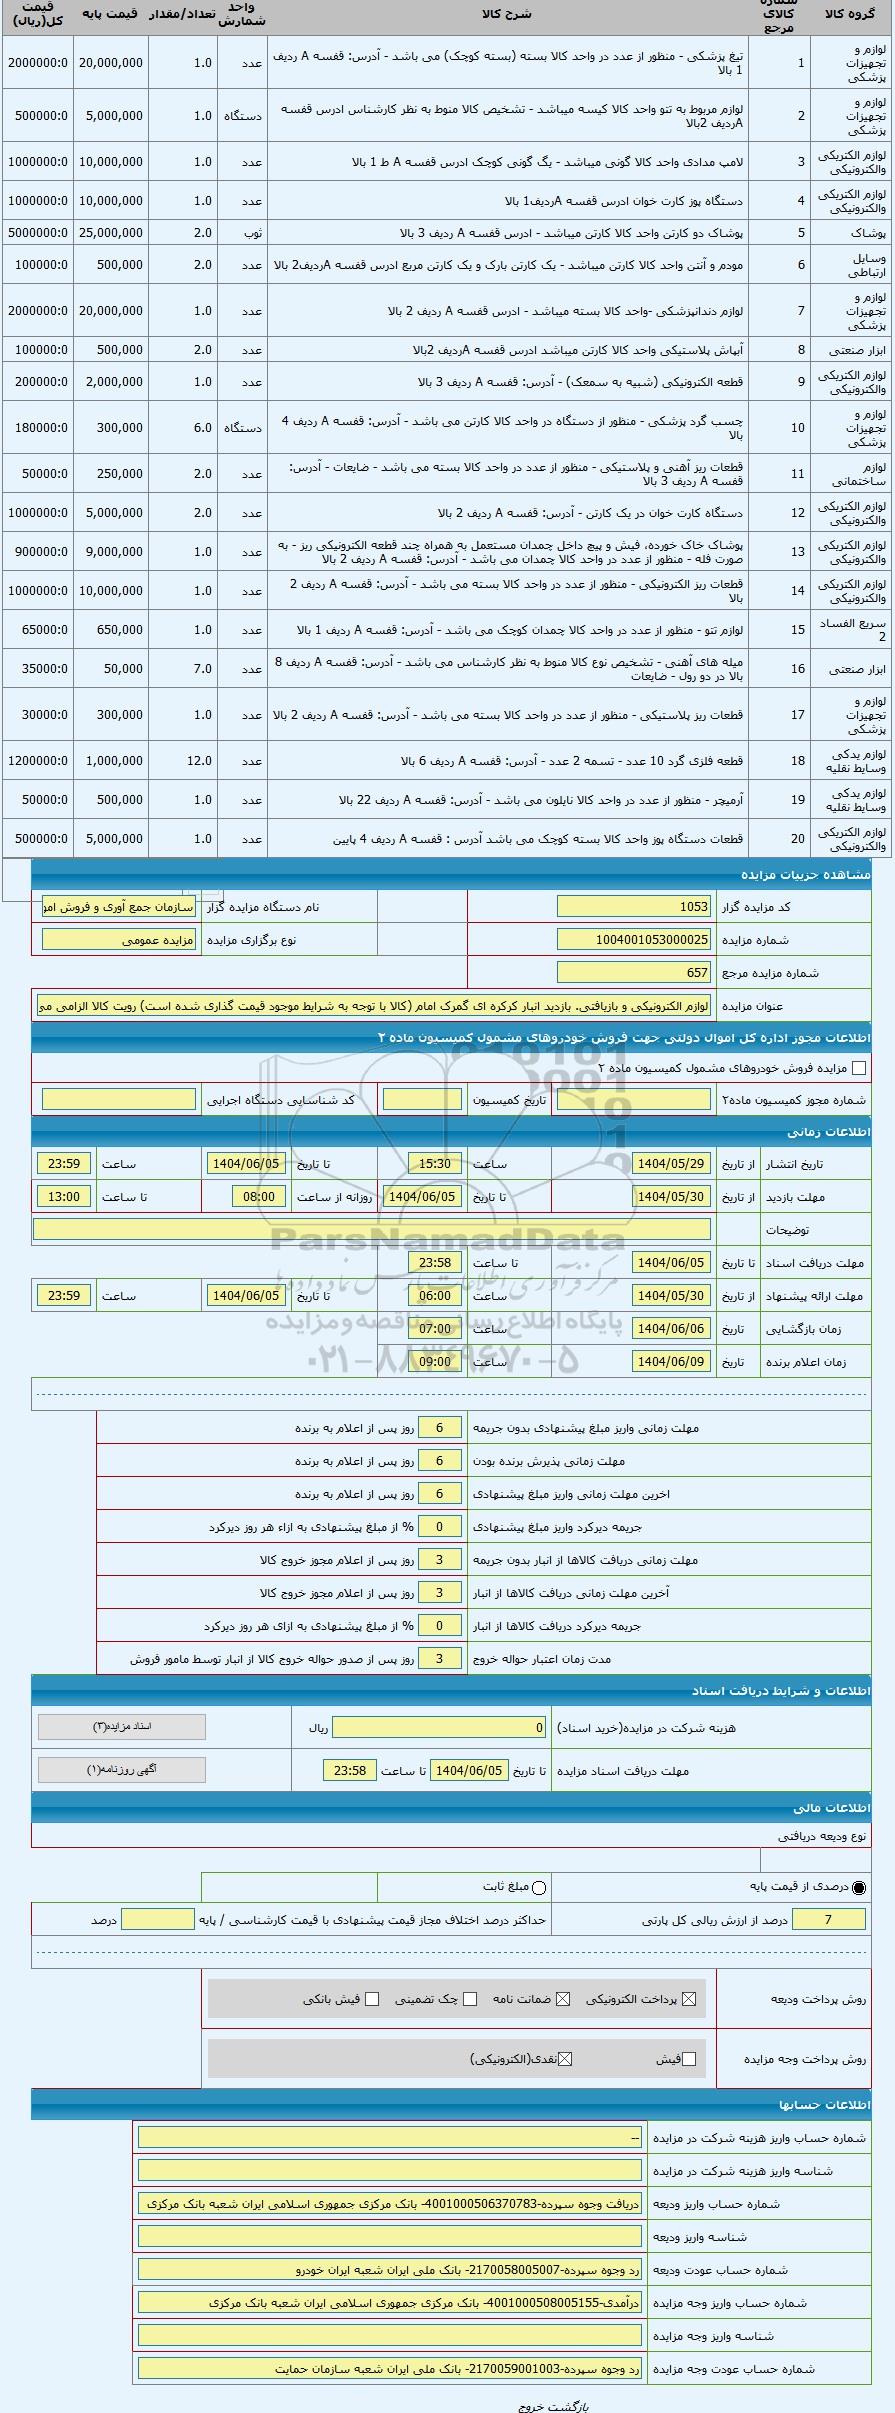 گروه کالا شماره کالای مرجع شرح کالا واحد شمارش تعداد/مقدار قیمت پایه قیمت کل(ریال)
لوازم و تجهیزات پزشکی 1 تیغ پزشکی - منظور از عدد در واحد کالا بسته (بسته کوچک) می باشد - آدرس: قفسه A ردیف 1 بالا عدد 1.0 20,000,000 2000000:0
لوازم و تجهیزات پزشکی 2 لوازم مربوط به تتو واحد کالا کیسه میباشد - تشخیص کالا منوط به نظر کارشناس ادرس قفسه Aردیف 2بالا دستگاه 1.0 5,000,000 500000:0
لوازم الکتریکی والکترونیکی 3 لامپ مدادی واحد کالا گونی میباشد - یگ گونی کوچک ادرس قفسه A ط 1 بالا عدد 1.0 10,000,000 1000000:0
لوازم الکتریکی والکترونیکی 4 دستگاه پوز کارت خوان ادرس قفسه Aردیف1 بالا عدد 1.0 10,000,000 1000000:0
پوشاک 5 پوشاک دو کارتن واحد کالا کارتن میباشد - ادرس قفسه A ردیف 3 بالا ثوب 2.0 25,000,000 5000000:0
وسایل ارتباطی 6 مودم و آنتن واحد کالا کارتن میباشد - یک کارتن بارک و یک کارتن مربع ادرس قفسه Aردیف2 بالا عدد 2.0 500,000 100000:0
لوازم و تجهیزات پزشکی 7 لوازم دندانپزشکی -واحد کالا بسته میباشد - ادرس قفسه A ردیف 2 بالا عدد 1.0 20,000,000 2000000:0
ابزار صنعتی 8 آبپاش پلاستیکی واحد کالا کارتن میباشد ادرس قفسه Aردیف 2بالا عدد 2.0 500,000 100000:0
لوازم الکتریکی والکترونیکی 9 قطعه الکترونیکی (شبیه به سمعک) - آدرس: قفسه A ردیف 3 بالا عدد 1.0 2,000,000 200000:0
لوازم و تجهیزات پزشکی 10 چسب گرد پزشکی - منظور از دستگاه در واحد کالا کارتن می باشد - آدرس: قفسه A ردیف 4 بالا دستگاه 6.0 300,000 180000:0
لوازم ساختمانی 11 قطعات ریز آهنی و پلاستیکی - منظور از عدد در واحد کالا بسته می باشد - ضایعات - آدرس: قفسه A ردیف 3 بالا عدد 2.0 250,000 50000:0
لوازم الکتریکی والکترونیکی 12 دستگاه کارت خوان در یک کارتن - آدرس: قفسه A ردیف 2 بالا عدد 2.0 5,000,000 1000000:0
لوازم الکتریکی والکترونیکی 13 پوشاک خاک خورده، فیش و پیچ داخل چمدان مستعمل به همراه چند قطعه الکترونیکی ریز - به صورت فله - منظور از عدد در واحد کالا چمدان می باشد - آدرس: قفسه A ردیف 2 بالا عدد 1.0 9,000,000 900000:0
لوازم الکتریکی والکترونیکی 14 قطعات ریز الکترونیکی - منظور از عدد در واحد کالا بسته می باشد - آدرس: قفسه A ردیف 2 بالا عدد 1.0 10,000,000 1000000:0
سریع الفساد 2 15 لوازم تتو - منظور از عدد در واحد کالا چمدان کوچک می باشد - آدرس: قفسه A ردیف 1 بالا عدد 1.0 650,000 65000:0
ابزار صنعتی 16 میله های آهنی - تشخیص نوع کالا منوط به نظر کارشناس می باشد - آدرس: قفسه A ردیف 8 بالا در دو رول - ضایعات عدد 7.0 50,000 35000:0
لوازم و تجهیزات پزشکی 17 قطعات ریز پلاستیکی - منظور از عدد در واحد کالا بسته می باشد - آدرس: قفسه A ردیف 2 بالا عدد 1.0 300,000 30000:0
لوازم یدکی وسایط نقلیه 18 قطعه فلزی گرد 10 عدد - تسمه 2 عدد - آدرس: قفسه A ردیف 6 بالا عدد 12.0 1,000,000 1200000:0
لوازم یدکی وسایط نقلیه 19 آرمیچر - منظور از عدد در واحد کالا نایلون می باشد - آدرس: قفسه A ردیف 22 بالا عدد 1.0 500,000 50000:0
لوازم الکتریکی والکترونیکی 20 قطعات دستگاه پوز واحد کالا بسته کوچک می باشد آدرس : قفسه A ردیف 4 پایین عدد 1.0 5,000,000 500000:0
مشاهده جزییات مزایده
کد مزایده گزار 1053 نام دستگاه مزایده گزار سازمان جمع آوری و فروش امو
شماره مزایده 1004001053000025 نوع برگزاری مزایده مزایده عمومی
شماره مزایده مرجع 657
عنوان مزایده لوازم الکترونیکی و بازیافتی. بازدید انبار کرکره ای گمرک امام (کالا با توجه به شرایط موجود قیمت گذاری شده است) رویت کالا الزامی می
اطلاعات مجوز اداره کل اموال دولتی جهت فروش خودروهای مشمول کمیسیون ماده ۲
مزایده فروش خودروهای مشمول کمیسیون ماده ۲
شماره مجوز کمیسیون ماده۲ تاریخ کمیسیون کد شناسایی دستگاه اجرایی
اطلاعات زمانی
تاریخ انتشار از تاریخ 1404/05/29 ساعت 15:30 تا تاریخ 1404/06/05 ساعت 23:59
مهلت بازدید از تاریخ 1404/05/30 تا تاریخ 1404/06/05 روزانه از ساعت 08:00 تا ساعت 13:00
توضیحات
ParsNamadData
مهلت دریافت اسناد تا تاریخ 1404/06/05 تا ساعت 23:58
مرکز فرآوری اطلاعات پارس نماد داده ها
مهلت ارائه پیشنهاد از تاریخ 1404/05/30 ساعت 06:00 تا تاریخ 1404/06/05 ساعت 23:59
پایگاه اطلاع رسانی مناقصه و مزایده
زمان بازگشایی تاریخ 1404/06/06 ساعت 07:00
۰۲۱-۸۸۳۴۹۶۷۰-۵
زمان اعلام برنده تاریخ 1404/06/09 ساعت 09:00
مهلت زمانی واریز مبلغ پیشنهادی بدون جریمه 6 روز پس از اعلام به برنده
مهلت زمانی پذیرش برنده بودن 6 روز پس از اعلام به برنده
اخرین مهلت زمانی واریز مبلغ پیشنهادی 6 روز پس از اعلام به برنده
جریمه دیرکرد واریز مبلغ پیشنهادی 0 % از مبلغ پیشنهادی به ازاء هر روز دیرکرد
مهلت زمانی دریافت کالاها از انبار بدون جریمه 3 روز پس از اعلام مجوز خروج کالا
آخرین مهلت زمانی دریافت کالاها از انبار 3 روز پس از اعلام مجوز خروج کالا
جریمه دیرکرد دریافت کالاها از انبار 0 % از مبلغ پیشنهادی به ازای هر روز دیرکرد
مدت زمان اعتبار حواله خروج 3 روز پس از صدور حواله خروج کالا از انبار توسط مامور فروش
اطلاعات و شرایط دریافت اسناد
هزینه شرکت در مزایده(خرید اسناد) 0 ریال اسناد مزایده(۳)
مهلت دریافت اسناد مزایده تا تاریخ 1404/06/05 تا ساعت 23:58 آگهی روزنامه(۱)
اطلاعات مالی
نوع ودیعه دریافتی
درصدی از قیمت پایه مبلغ ثابت
7 درصد از ارزش ریالی کل پارتی حداکثر درصد اختلاف مجاز قیمت پیشنهادی با قیمت کارشناسی / پایه درصد
روش پرداخت ودیعه پرداخت الکترونیکی ضمانت نامه چک تضمینی فیش بانکی
روش پرداخت وجه مزایده فیش نقدی(الکترونیکی)
اطلاعات حسابها
شماره حساب واریز هزینه شرکت در مزایده --
شناسه واریز هزینه شرکت در مزایده
شماره حساب واریز ودیعه دریافت وجوه سپرده-4001000506370783- بانک مرکزی جمهوری اسلامی ایران شعبه بانک مرکزی
شناسه واریز ودیعه
شماره حساب عودت ودیعه رد وجوه سپرده-2170058005007- بانک ملی ایران شعبه ایران خودرو
شماره حساب واریز وجه مزایده درآمدی-4001000508005155- بانک مرکزی جمهوری اسلامی ایران شعبه بانک مرکزی
شناسه واریز وجه مزایده
شماره حساب عودت وجه مزایده رد وجوه سپرده-2170059001003- بانک ملی ایران شعبه سازمان حمایت
بازگشت خروج